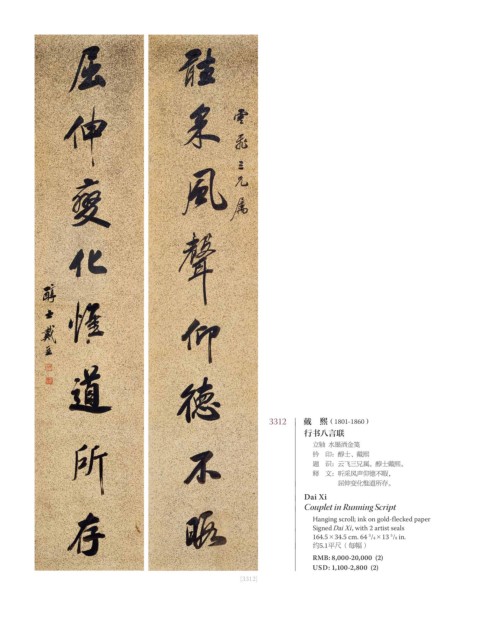 听采風聲仰德不暇
雲飛三兄属
屈伸變化惟道所存
醇士戴熙
3312
戴 熙（1801-1860）
行书八言联
立轴 水墨洒金笺
钤 印：醇士、戴熙
题 识：云飞三兄属。醇士戴熙。
释 文：听采风声仰德不暇，
屈伸变化惟道所存。
Dai Xi
Couplet in Running Script
Hanging scroll, ink on gold-flecked paper
Signed Dai Xi, with 2 artist seals
164.5 × 34.5 cm. 64 3/4 × 13 5/8 in.
约5.1平尺（每幅）
RMB: 8,000-20,000 (2)
USD: 1,100-2,800 (2)
[3312]